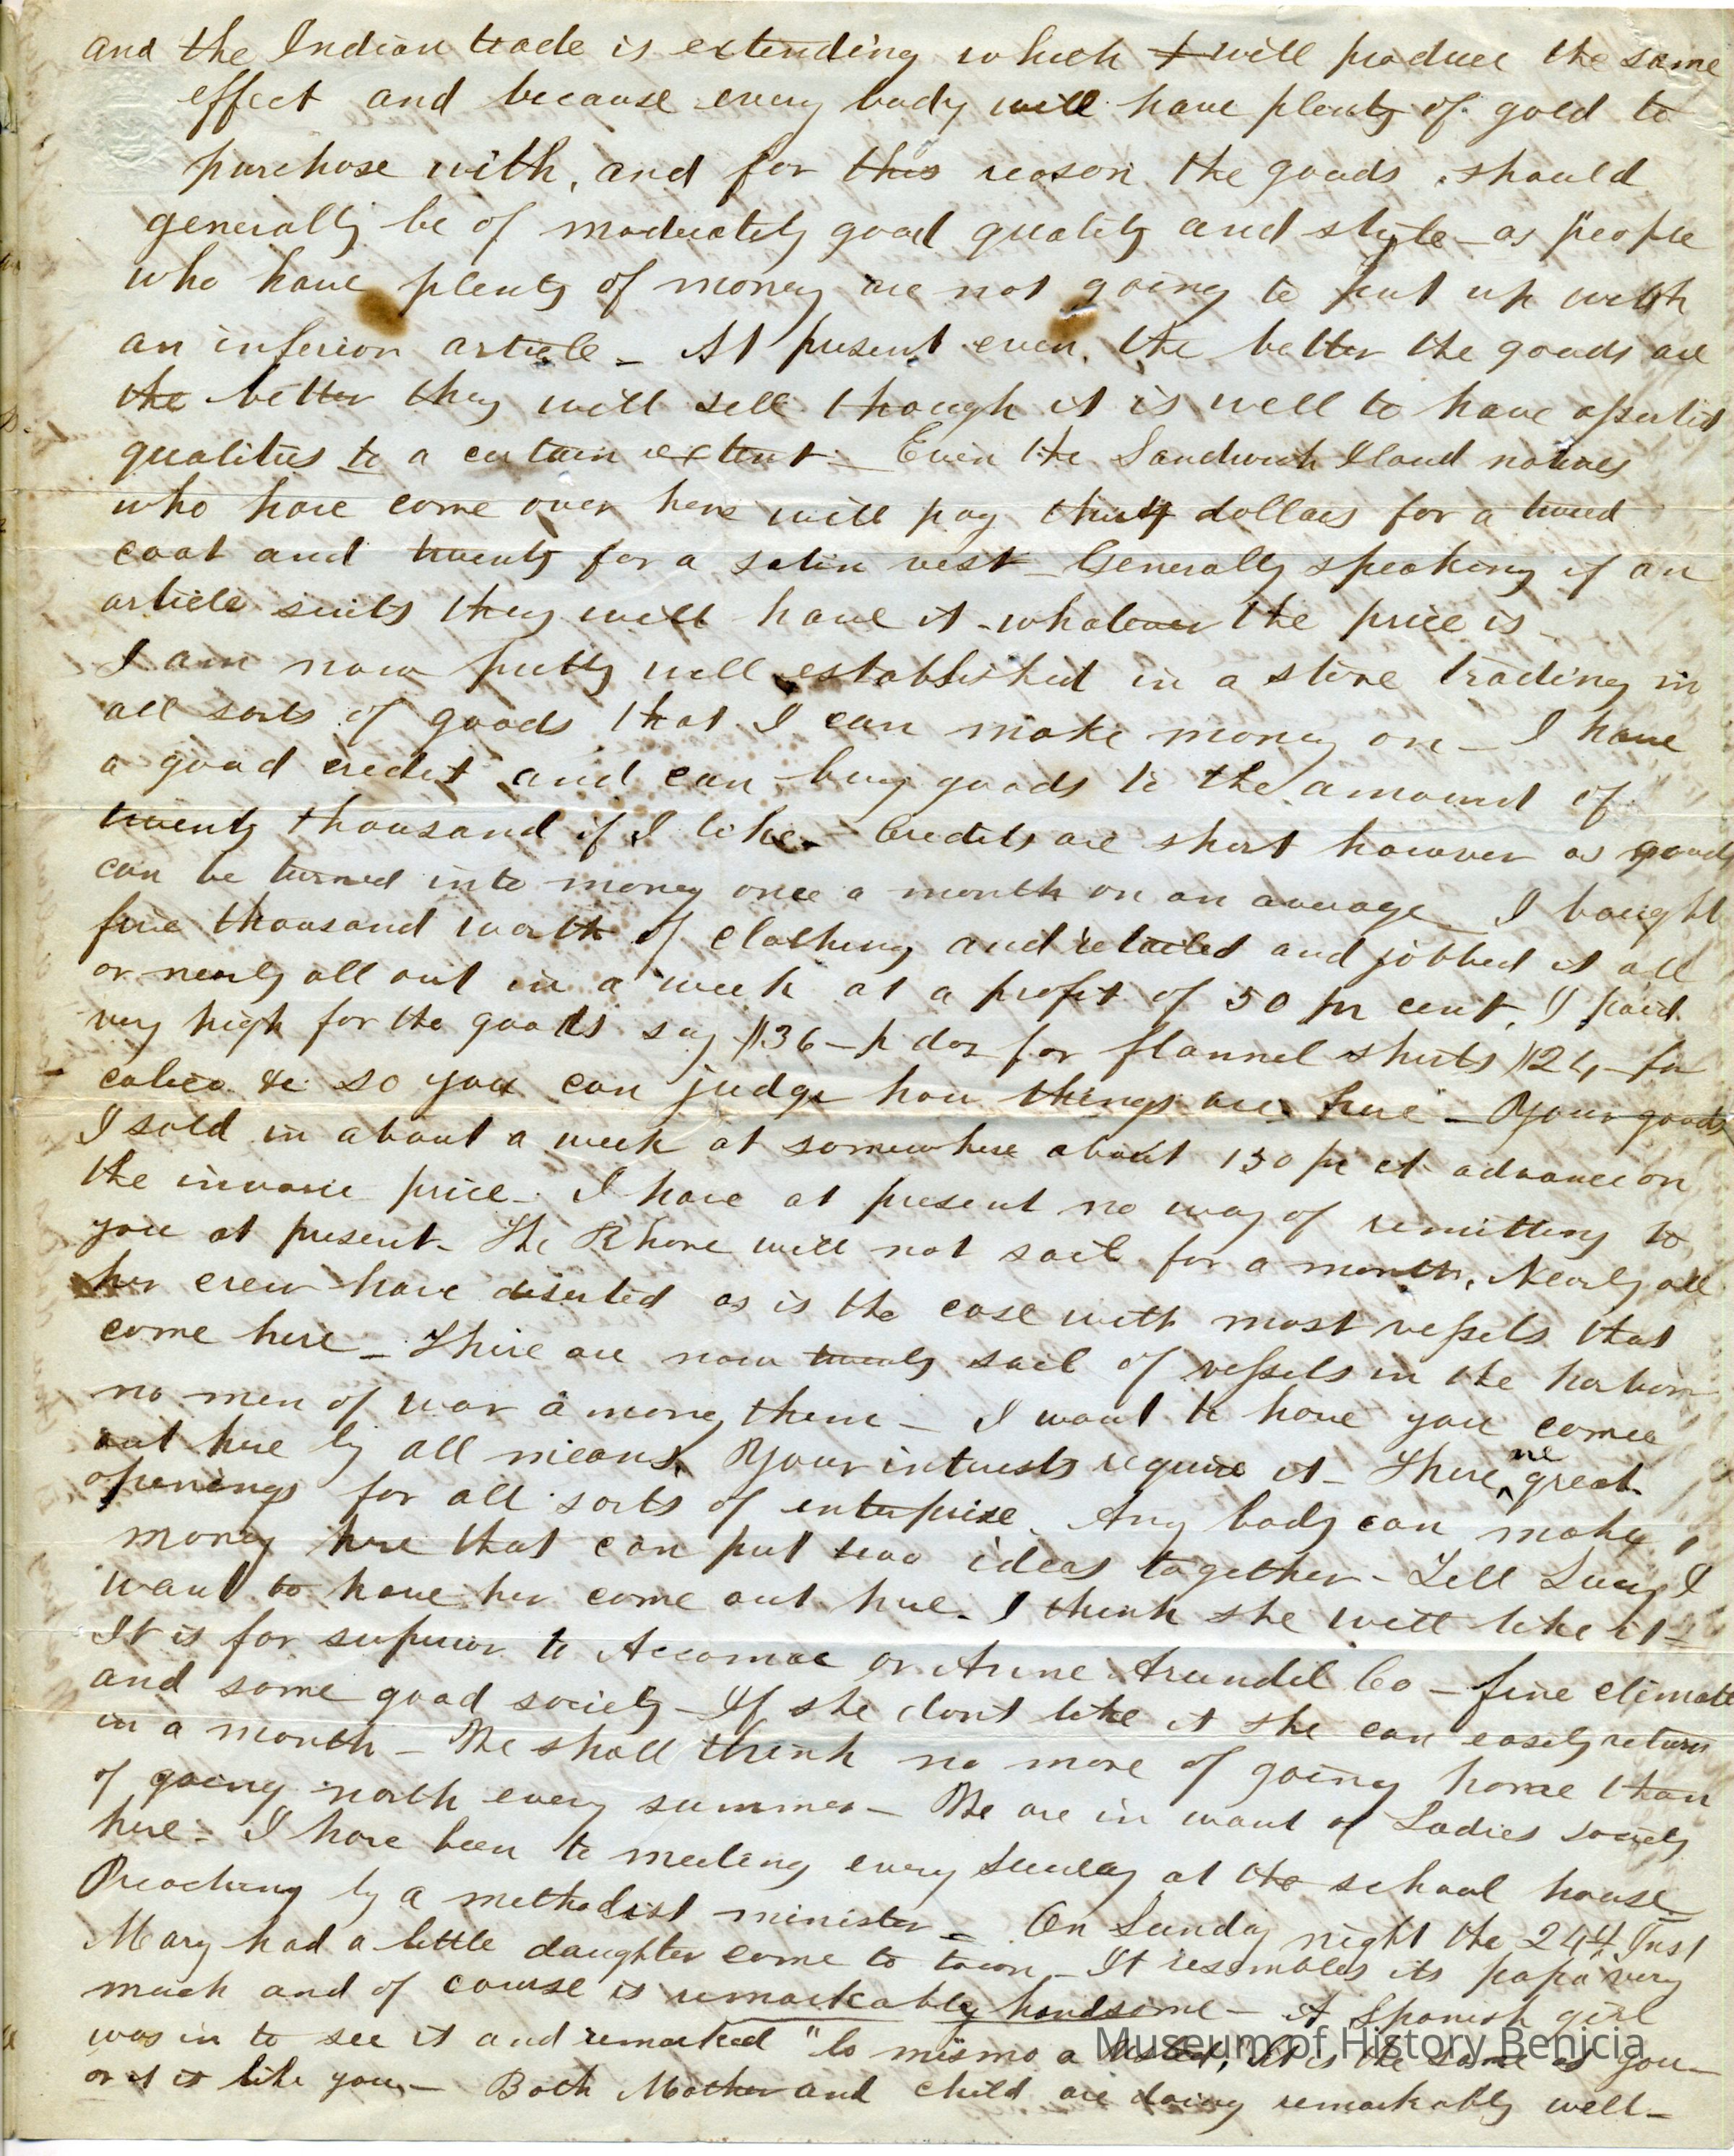 and the Indian trade is extending which I will produce the same
effect and because every body will have plenty of gold to
purchase with, and for this reason the goods should
generally be of moderately good quality and style - as people
who have plenty of money are not going to put up with
an inferior article - At present even, the better the goods are
the better they will sell though it is well to have assorted
qualities to a certain extent - Even the Sandwich Iland natives
who have come over here will pay thirty dollars for a tweed
coat and twenty for a satin vest - Generally speaking if an
article suits they will have it - whatever the price is -
I am now pretty well established in a store trading in
all sorts of goods that I can make money on - I have
a good credit and can buy goods to the amount of
twenty thousand if I like - Credits are short however as goods
can be turned into money once a month on an average - I bought
five thousand worth of clothing and retailed and jobbed it all
or nearly all out in a week at a profit of 50 pr cent. I paid
very high for the goods say $36 - p doz for flannel shirts $24 - for
calico &c so you can judge how things are here - Your goods
I sold in about a week at somewhere about 150 pr ct advance on
the invoice price - I have at present no way of remitting to
you at present - The Rhone will not sail for a month, Nearly all
her crew have deserted as is the case with most vessels that
come here - There are now twenty sail of vessels in the harbour
no men of war among them - I want to have you come
out here by all means. Your interests require it - There are great
openings for all sorts of enterprise. Any body can make
money here that can put two ideas together - Tell Lucy I
want to have her come out here - I think she will like it -
It is far superior to Accomac or Anne Arundel Co - fine climate
and some good society - If she dont like it she can easily return
in a month - We shall think no more of going home than
of going north every summer - We are in want of Ladies society
here - I have been to meeting every Sunday at the school house
Preaching by a methodist minister - On Sunday night the 24th Inst
Mary had a little daughter come to town - It resembles its papa very
much and of course is remarkably handsome - A Spanish girl
was in to see it and remarked "lo mismo a Usted," It is the same as you -
or it is like you - Both Mother and child are doing remarkably well -
Museum of History Benicia